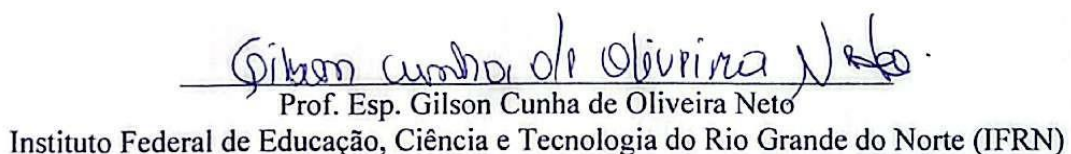 Gilson Cunha de Oliveira Neto.
Prof. Esp. Gilson Cunha de Oliveira Neto
Instituto Federal de Educação, Ciência e Tecnologia do Rio Grande do Norte (IFRN)